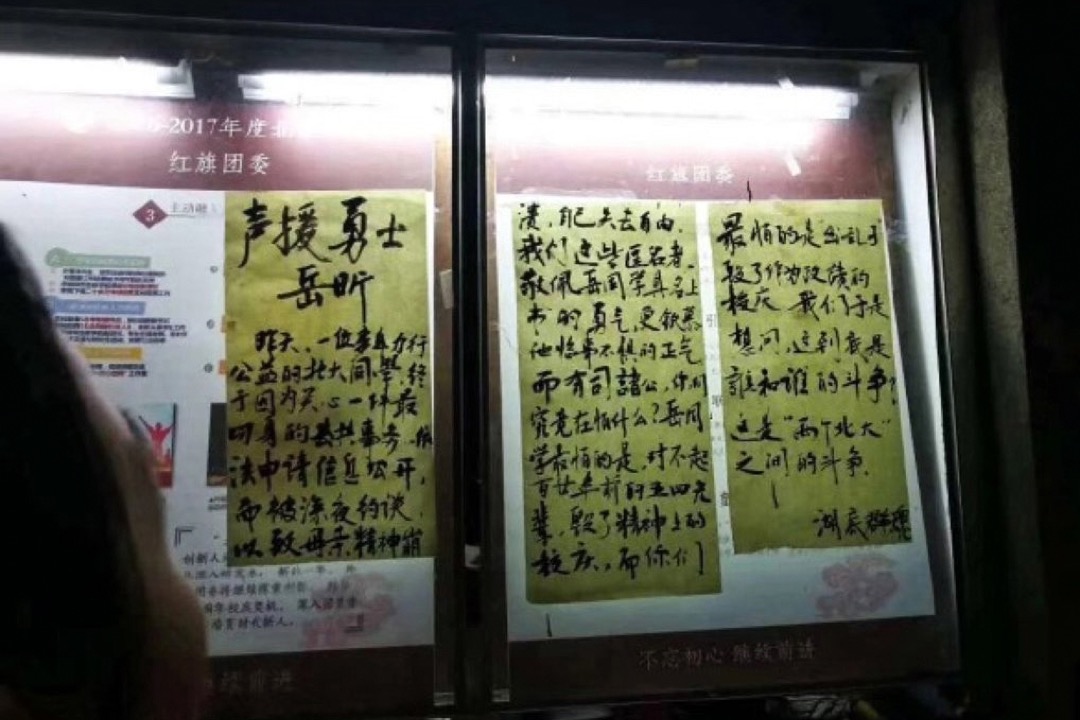 -2017年度北
红旗团委
3
主动融
声援勇士
岳昕
昨天,一位
力行
公益的北大同学,终
于因为关心一件最
切身的公共事务,依
法申请信息公开,
而被深夜约谈,
以致母亲精神崩
创新人
继续前进
红旗团委
溃,自己失去自由。
我们这些匿名者,
敬佩岳同学具名上
书的勇气,更钦慕
他临事不惧的正气
而有司諸公,你们
究竟在怕什么?岳同
学最怕的是,对不起
百廿年前的五四先
辈,毁了精神上的
校庆,而你们
最怕的是"出乱子"
毁了作为政绩的
校庆 我们于是
想问,这到底是
谁和谁的斗争?
这是"两个北大"
之间的斗争。
湖底群魂
不忘初心 继续前进